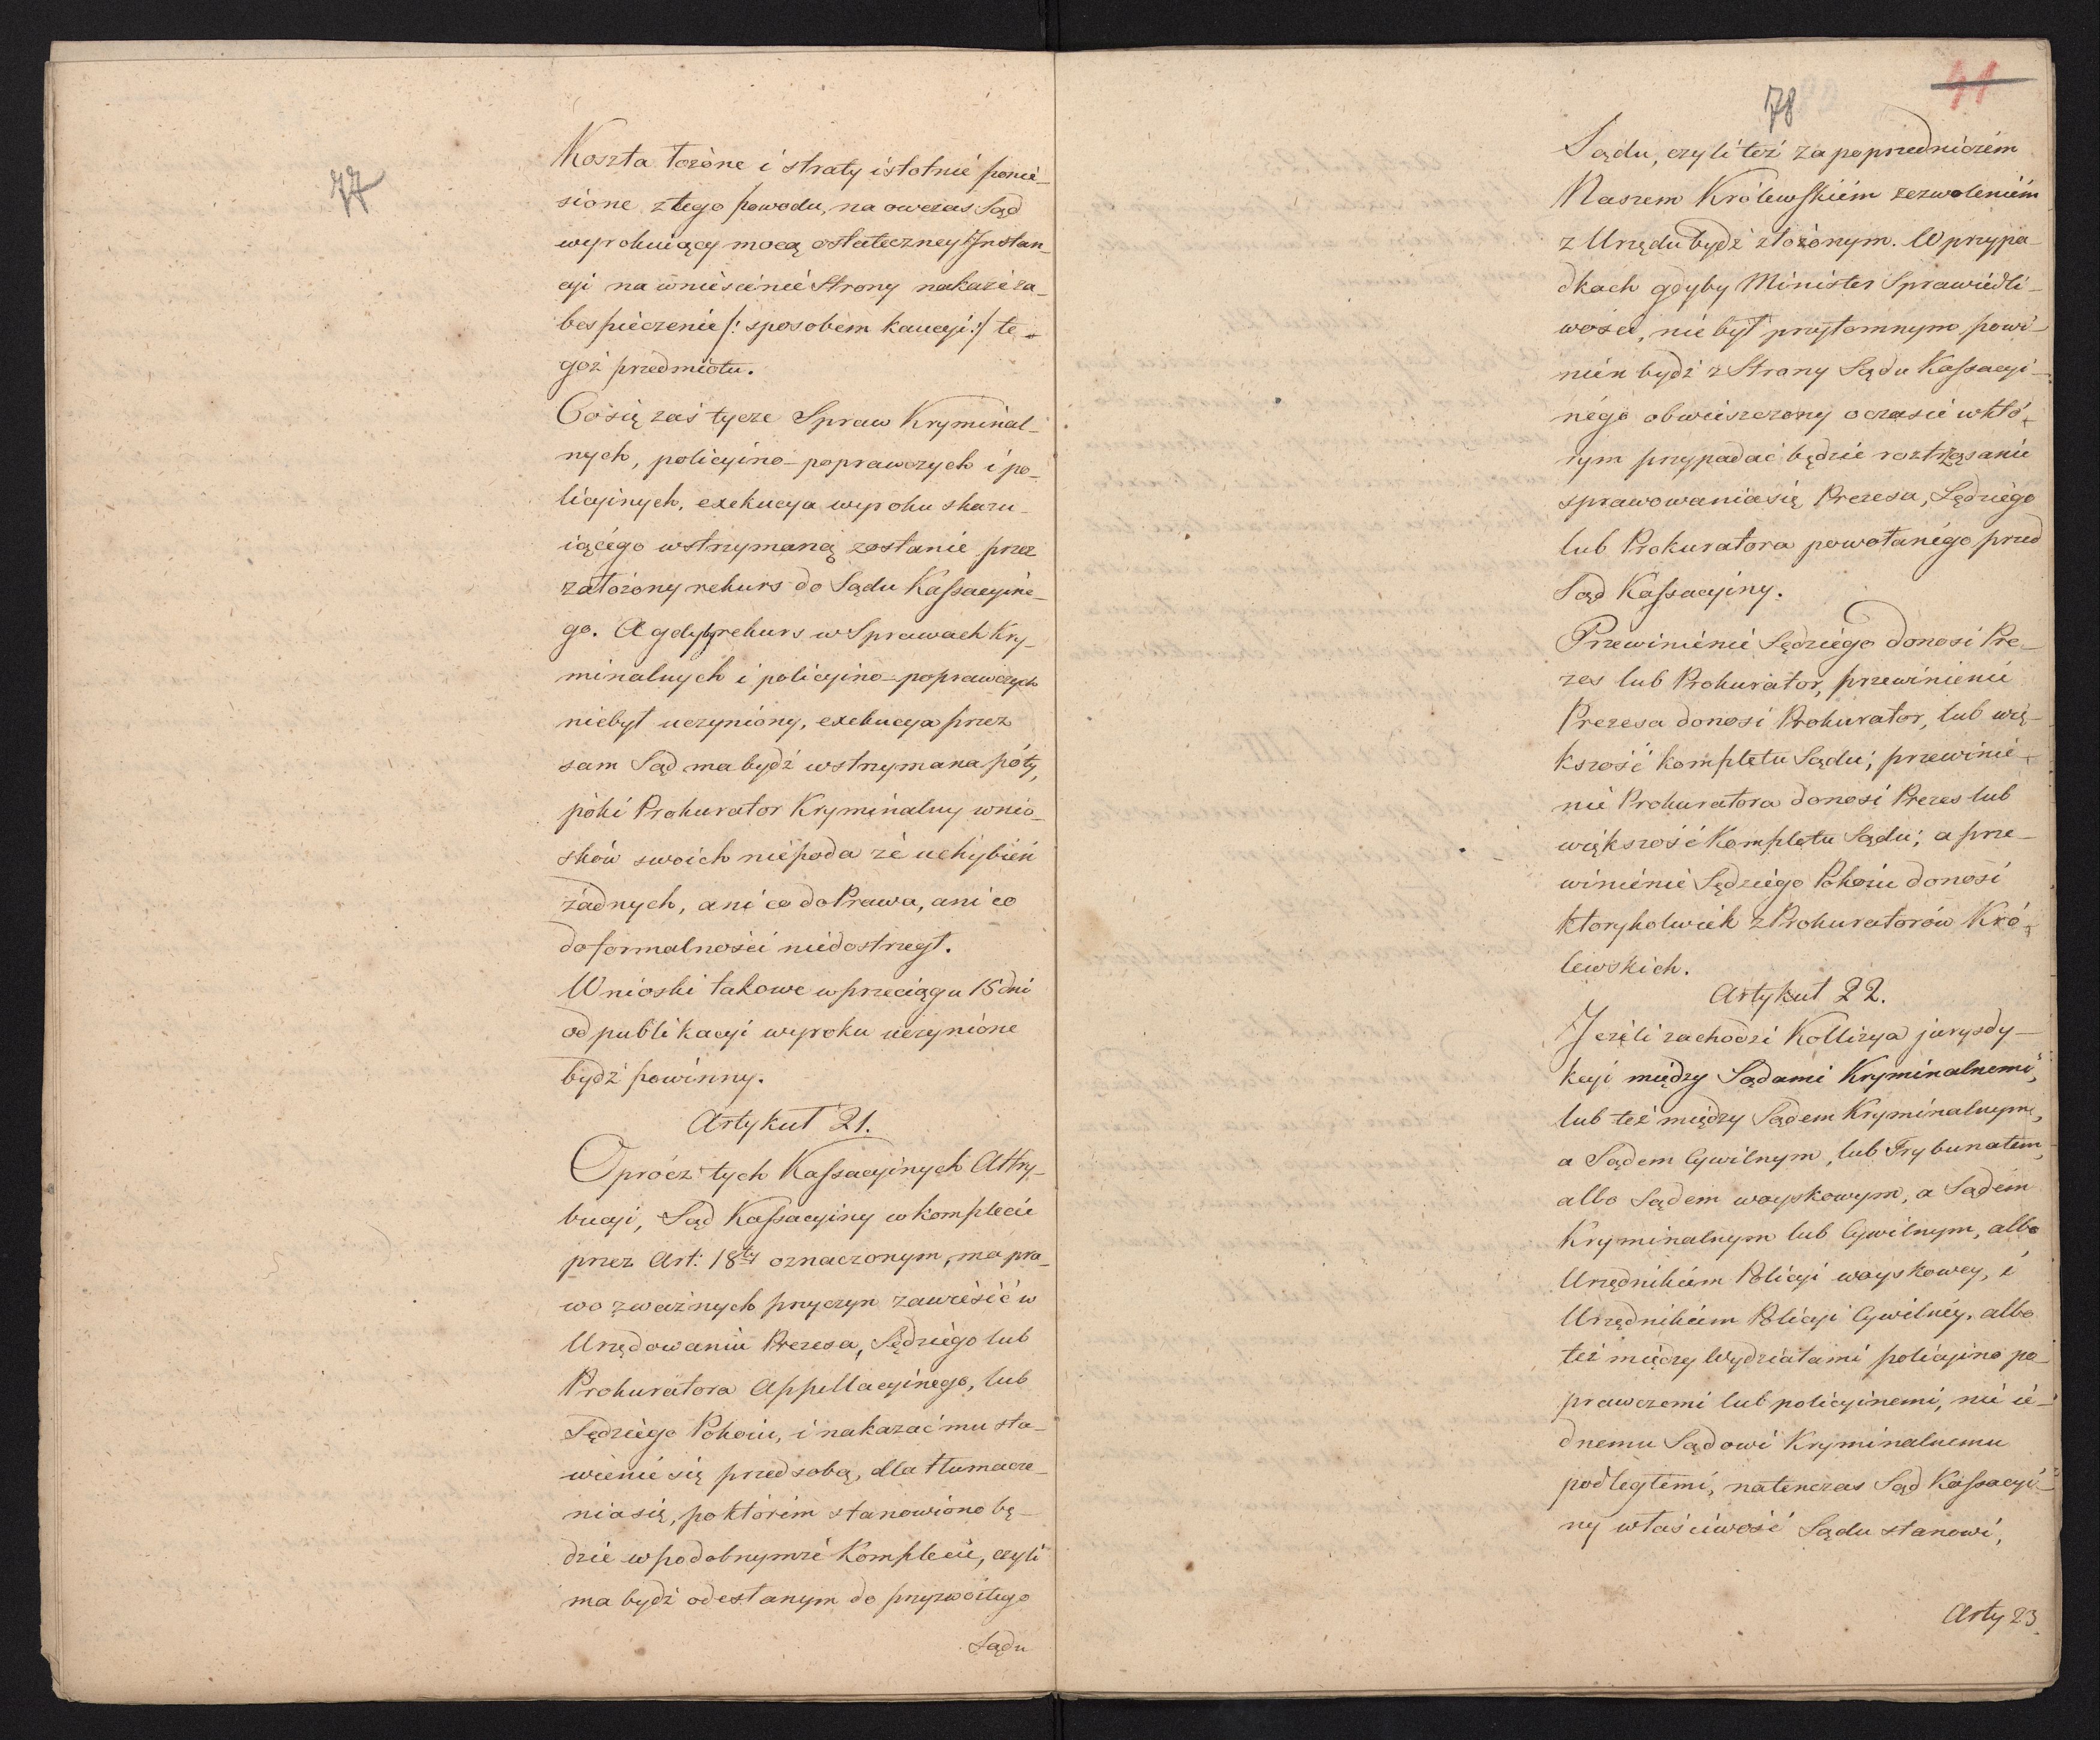 77
Koszta łożone i straty istotnie ponie-
sione z tego powodu, na owczas Sąd
wyrokuiący mocą ostateczney Instan-
cyi na wniesienie Strony nakaże za-
bespieczenie /: sposobem kaucyi :/ te-
goż przedmiotu.
Co się zaś tycze Spraw Kryminal-
nych, policyino-poprawczych i po-
licyinych, exekucya wyroku skazu-
iącego wstrzymaną zostanie przez
założony rekurs do Sądu Kassacyine-
go. A gdyby rekurs w Sprawach Kry-
minalnych i policyino-poprawczych
niebył uczyniony, exekucya przez
sam Sąd ma bydź wstrzymana póty,
póki Prokurator Kryminalny wnio-
sków swoich niepoda że uchybień
żadnych, ani co do Prawa, ani co
do formalności niedostrzegł.
Wnioski takowe w przeciągu 15 dni
od publikacyi wyroku uczynione
bydź powinny.
Artykuł 21.
Oprócz tych Kassacyinych Attry-
bucyi, Sąd Kassacyiny w komplecie
przez Art: 18ty oznaczonym, ma pra-
wo z ważnych przyczyn zawiesić w
Urzędowaniu Prezesa, Sędziego lub
Prokuratora Appellacyinego, lub
Sędziego Pokoiu, i nakazać mu sta-
wienie się przed sobą, dla tłumacze-
nia się, po którém stanowiono bę-
dzie w podobnymże Komplecie, czyli
ma bydź odesłanym do przyzwoitego
Sądu
78
41
Sądu, czyli też za poprzedniczém
Naszem Królewskiém zezwoleniém
z Urzędu bydź złożonym. W przypa-
dkach gdyby Minister Sprawiedli-
wości, nie był przytomnym powi-
nién bydź z Strony Sądu Kassacyi-
nego obwieszczony o czasie w któ-
rym przypadać będzie roztrząsanie
sprawowania się Prezesa, Sędziego
lub Prokuratora powołanego przed
Sąd Kassacyiny.
Przewinienie Sędziego donosi Pre-
zes lub Prokurator, przewinienie
Prezesa donosi Prokurator, lub wię-
kszość kompletu Sądu; przewinie-
nie Prokuratora donosi Prezes lub
większość Kompletu Sądu; a prze-
winienie Sędziego Pokoiu donosi
którykolwiek z Prokuratorów Kró-
lewskich.
Artykuł 22.
Jeżeli zachodzi Kollizya jurysdy-
kcyi między Sądami Kryminalnemi,
lub też między Sądem Kryminalnym,
a Sądem Cywilnym, lub Trybunałem,
albo Sądem woyskowym, a Sądem
Kryminalnym lub Cywilnym, albo
Urzędnikiem Policyi woyskowey, i
Urzędnikiem Policyi Cywilnéy, albo
też między Wydziałami policyino po-
prawczemi lub policyinemi, nie ie-
dnemu Sądowi Kryminalnemu
podległemi, natenczas Sąd Kassacyi-
ny właściwość Sądu stanowi,
Arty 23.